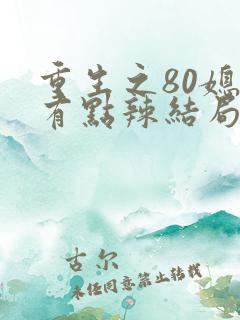 重生之80媳
有點辣結局
古尔
未经同意禁止转载